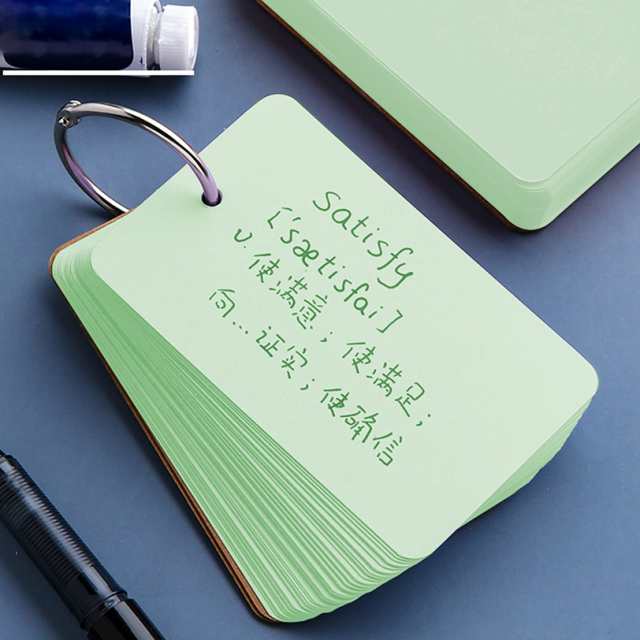 satisfy
['sætisfai]
v. 使满意；使满足；
向...证实；使确信